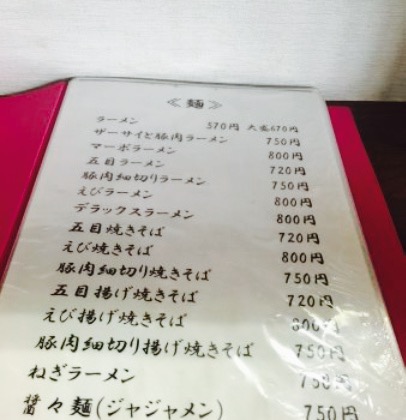 ≪ 麺 ≫
ラーメン 570円 大盛670円
ザーサイと豚肉ラーメン 750円
マーボラーメン 800円
五目ラーメン 720円
豚肉細切りラーメン 750円
えびラーメン 800円
デラックスラーメン 800円
五目焼きそば 720円
えび焼きそば 800円
豚肉細切り焼きそば 750円
五目揚げ焼きそば 720円
えび揚げ焼きそば 800円
豚肉細切り揚げ焼きそば 750円
ねぎラーメン 750円
醤々麺(ジャジャメン) 750円